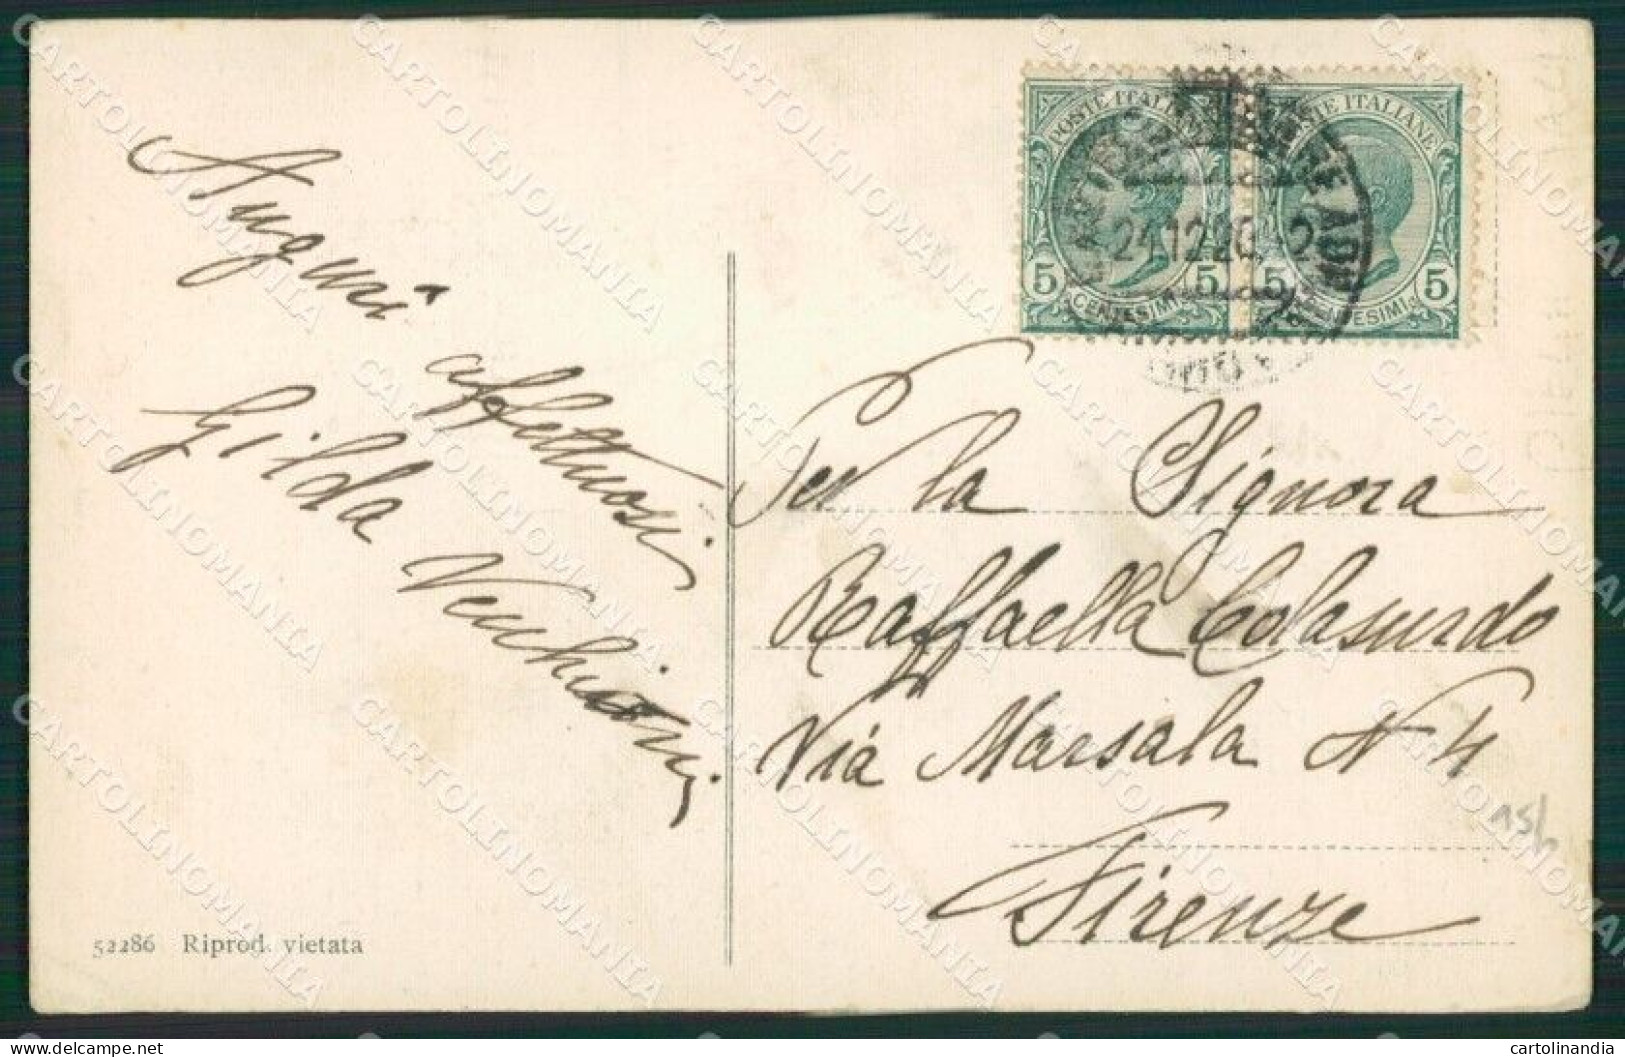 Auguri
affettuosi
Gilda Vecchioni
52286 Riprod. vietata
POSTE ITALIANE
POSTE ITALIANE
5 CENTESIMI 5
5 CENTESIMI 5
21.12.20
Per la Signora
Raffaella Colasurdo
Via Marsala N 4
Firenze
CARTOLINOMANIA
cartolinandia